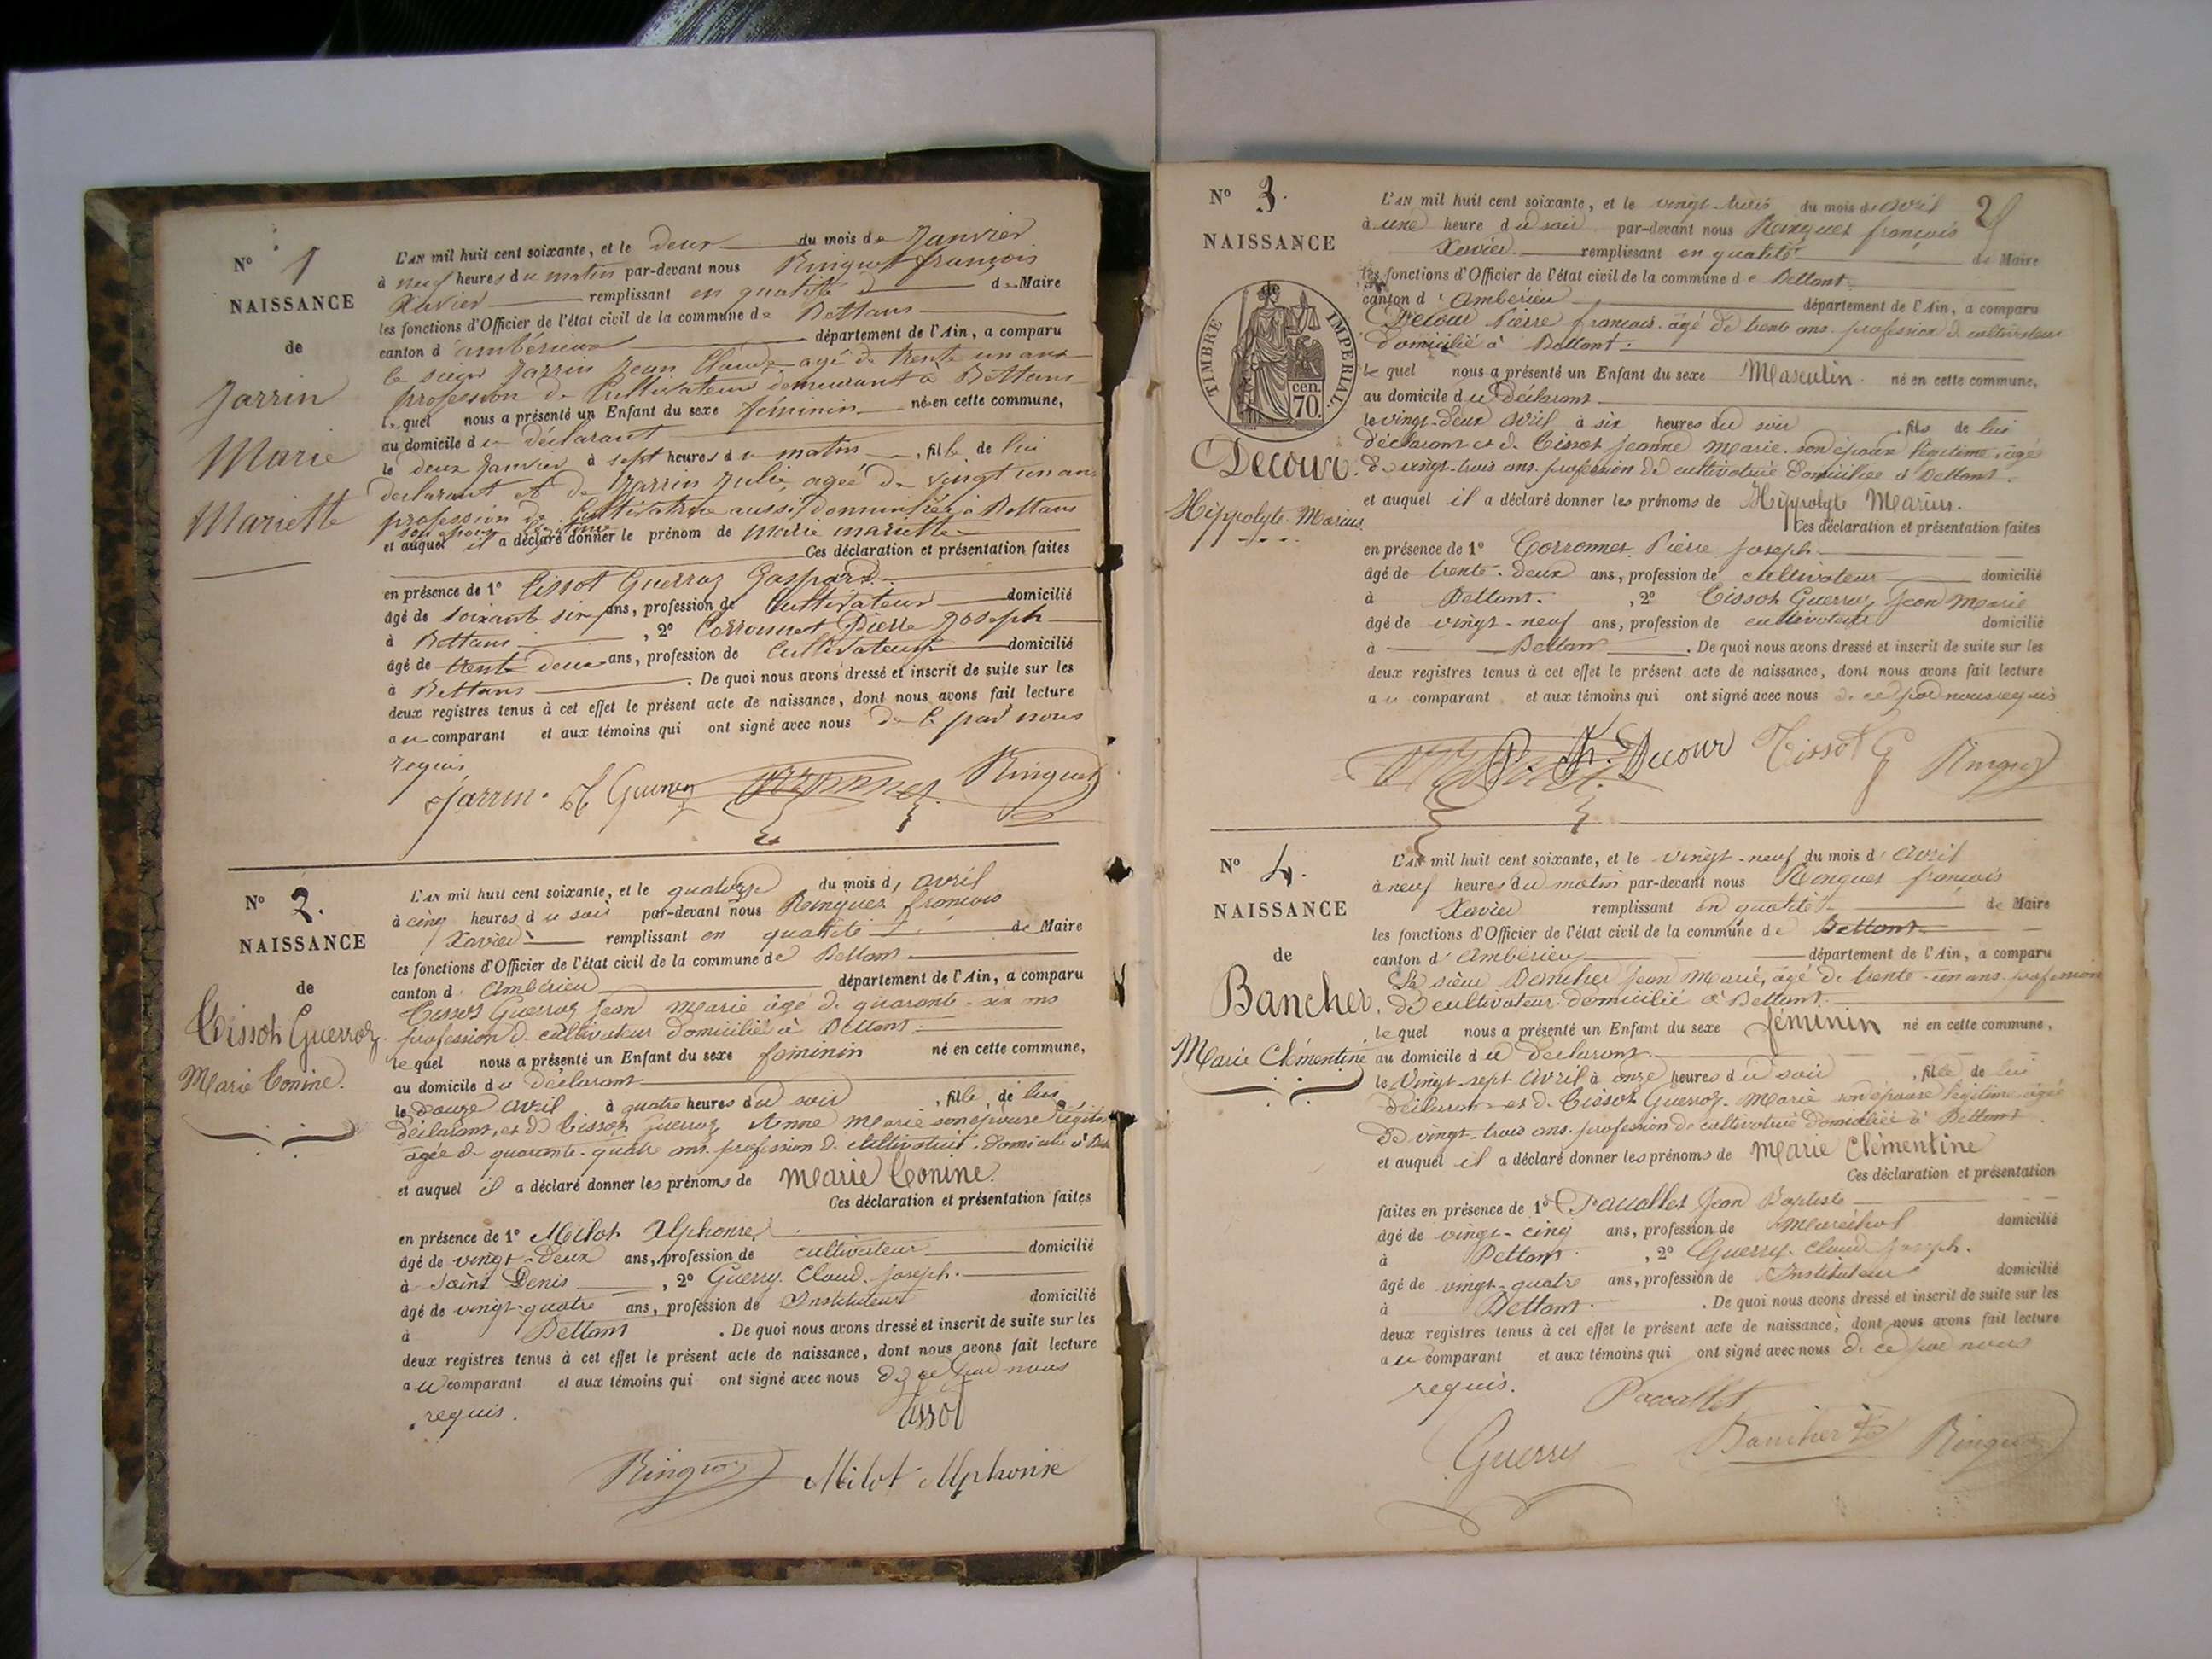 N° 1
NAISSANCE
de
Jarrin
Marie
Mariette
L'AN mil huit cent soixante, et le deux du mois de Janvier
à neuf heures du matin par-devant nous Ringuet françois
Xavier remplissant en qualité de Maire
les fonctions d'Officier de l'état civil de la commune de Bettans
canton d'ambérieux département de l'Ain, a comparu
le sieur Jarrin Jean Claude agé de trente un ans
profession de Cultivateur demeurant à Bettans
lequel nous a présenté un Enfant du sexe féminin né en cette commune,
au domicile du déclarant
le deux Janvier à sept heures du matin, fille de lui
declarant et de Jarrin Julie agée de vingt un ans
profession de Cultivatrice aussi domiciliée à Bettans
son épouse légitime
et auquel il a déclaré donner le prénom de Marie mariette
Ces déclaration et présentation faites
en présence de 1° Tissot Guerraz Gaspard
âgé de soixante six ans, profession de Cultivateur domicilié
à Bettans, 2° Corronnet Pierre Joseph
âgé de trente deux ans, profession de Cultivateur domicilié
à Bettans. De quoi nous avons dressé et inscrit de suite sur les
deux registres tenus à cet effet le présent acte de naissance, dont nous avons fait lecture
au comparant et aux témoins qui ont signé avec nous de ce par nous
requis
Jarrin. Ringuet
N° 2.
NAISSANCE
de
Tissot Guerroz.
Marie Tonine.
L'AN mil huit cent soixante, et le quatorze du mois d'avril
à cinq heures du soir par-devant nous Ringuet françois
Xavier remplissant en qualité de Maire
les fonctions d'Officier de l'état civil de la commune de Bettans
canton d'Ambérieu département de l'Ain, a comparu
Tissot Guerroz Jean Marie âgé de quarante-six ans
profession de cultivateur domicilié à Bettans.
lequel nous a présenté un Enfant du sexe féminin né en cette commune,
au domicile du déclarant
le douze avril à quatre heures du soir, fille de lui
déclarant, et de Tissot Guerroz Anne Marie son épouse légitime
agée de quarante-quatre ans profession de cultivatrice domiciliée à
et auquel il a déclaré donner les prénoms de Marie Tonine.
Ces déclaration et présentation faites
en présence de 1° Milot Alphonse
âgé de vingt-deux ans, profession de cultivateur domicilié
à Saint Denis, 2° Guerry Claude Joseph.
âgé de vingt-quatre ans, profession de Instituteur domicilié
à Bettans. De quoi nous avons dressé et inscrit de suite sur les
deux registres tenus à cet effet le présent acte de naissance, dont nous avons fait lecture
au comparant et aux témoins qui ont signé avec nous de ce par nous
requis.
Tissot
Ringuet Milot Alphonse
2
N° 3.
NAISSANCE
de
TIMBRE IMPERIAL.
70 cen.
Decour.
Hippolyte Marius
L'AN mil huit cent soixante, et le vingt-trois du mois d'avril
à une heure du soir par-devant nous Ringuet françois
Xavier remplissant en qualité de Maire
les fonctions d'Officier de l'état civil de la commune de Bettant
canton d'Ambérieu département de l'Ain, a comparu
Decour Pierre françois âgé de trente ans profession de cultivateur
domicilié à Bettant.
lequel nous a présenté un Enfant du sexe Masculin né en cette commune,
au domicile du Déclarant
le vingt-deux avril à six heures du soir, fils de lui
déclarant et de Tissot Jeanne Marie son épouse légitime agée
de vingt-trois ans profession de cultivatrice domiciliée à Bettant.
et auquel il a déclaré donner les prénoms de Hippolyte Marius.
Ces déclaration et présentation faites
en présence de 1° Corronnet Pierre Joseph
âgé de trente-deux ans, profession de cultivateur domicilié
à Bettant., 2° Tissot Guerroz Jean Marie
âgé de vingt-neuf ans, profession de cultivateur domicilié
à Bettan. De quoi nous avons dressé et inscrit de suite sur les
deux registres tenus à cet effet le présent acte de naissance, dont nous avons fait lecture
au comparant et aux témoins qui ont signé avec nous de ce par nous requis
Decour Tissot G Ringuet
N° 4.
NAISSANCE
de
Bancher.
Marie Clémentine
L'AN mil huit cent soixante, et le vingt-neuf du mois d'avril
à neuf heures du matin par-devant nous Ringuet françois
Xavier remplissant en qualité de Maire
les fonctions d'Officier de l'état civil de la commune de Bettant
canton d'Ambérieu département de l'Ain, a comparu
Le sieur Bancher Jean Marie, âgé de trente-un ans profession
de cultivateur domicilié à Bettant.
lequel nous a présenté un Enfant du sexe féminin né en cette commune,
au domicile du déclarant
le Vingt-sept Avril à onze heures du soir, fille de lui
déclarant et de Tissot Guerroz Marie son épouse légitime agée
de vingt-trois ans profession de cultivatrice domiciliée à Bettant
et auquel il a déclaré donner les prénoms de Marie Clémentine
Ces déclaration et présentation
faites en présence de 1° Jean Baptiste
âgé de vingt-cinq ans, profession de Maréchal domicilié
à Bettant, 2° Guerry Claude Joseph.
âgé de vingt-quatre ans, profession de Instituteur domicilié
à Bettant. De quoi nous avons dressé et inscrit de suite sur les
deux registres tenus à cet effet le présent acte de naissance, dont nous avons fait lecture
au comparant et aux témoins qui ont signé avec nous de ce par nous
requis.
Guerry Bancher Ringuet